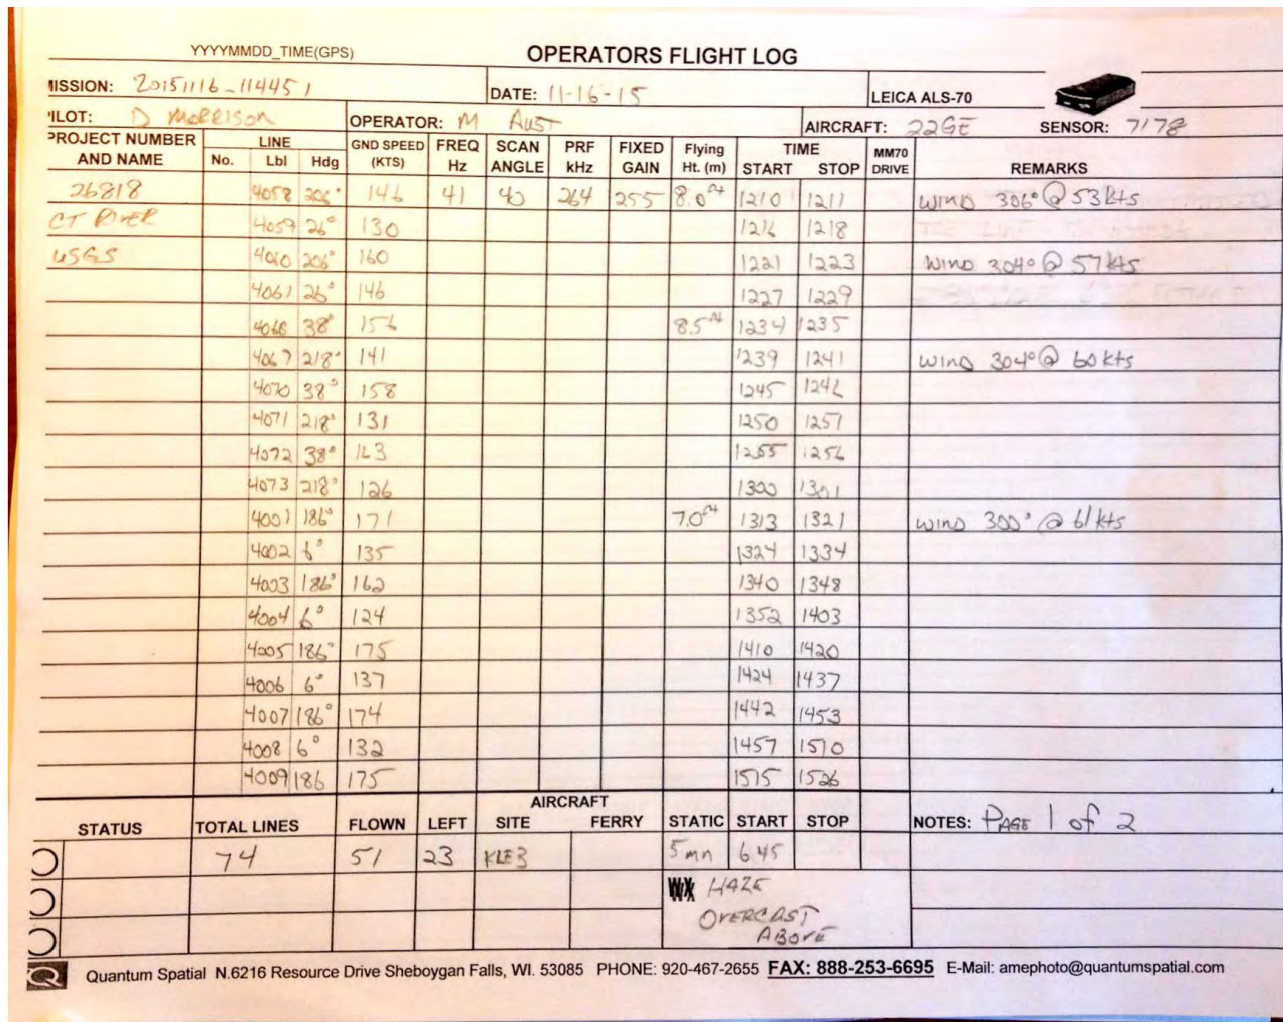 YYYYMMDD_TIME(GPS)
OPERATORS FLIGHT LOG
MISSION: 20151116_114451
DATE: 11-16-15
LEICA ALS-70
PILOT: D MORRISON
OPERATOR: M AUST
AIRCRAFT: 22GE
SENSOR: 7178
PROJECT NUMBER AND NAME LINE No. Lbl Hdg GND SPEED (KTS) FREQ Hz SCAN ANGLE PRF kHz FIXED GAIN Flying Ht. (m) TIME START STOP MM70 DRIVE REMARKS
26818 4058 206° 146 41 40 264 255 8.0 1210 1211 WIND 306° @ 53kts
CT RIVER 4059 26° 130 1216 1218
USGS 4060 206° 160 1221 1223 WIND 304° @ 57kts
4061 26° 146 1227 1229
4066 38° 156 8.5 1234 1235
4067 218° 141 1239 1241 WIND 304° @ 60kts
4070 38° 158 1245 1246
4071 218° 131 1250 1251
4072 38° 163 1255 1256
4073 218° 126 1300 1301
4001 186° 171 7.0 1313 1321 WIND 300° @ 61kts
4002 6° 135 1324 1334
4003 186° 162 1340 1348
4004 6° 124 1352 1403
4005 186° 175 1410 1420
4006 6° 137 1424 1437
4007 186° 174 1442 1453
4008 6° 132 1457 1510
4009 186 175 1515 1526
STATUS TOTAL LINES FLOWN LEFT AIRCRAFT SITE FERRY STATIC START STOP NOTES: PAGE 1 of 2
74 51 23 KLEB 5 mn 645
WX HAZE
OVERCAST
ABOVE
Quantum Spatial N.6216 Resource Drive Sheboygan Falls, WI. 53085 PHONE: 920-467-2655 FAX: 888-253-6695 E-Mail: amephoto@quantumspatial.com